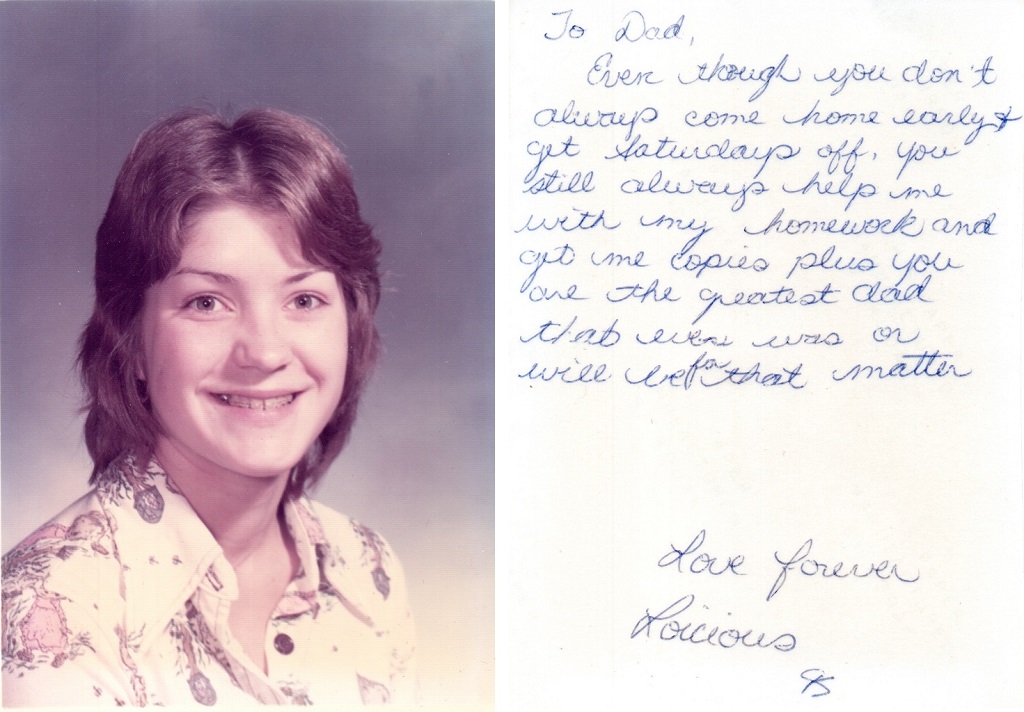 To Dad,
Even though you don't
always come home early &
get Saturdays off, you
still always help me
with my homework and
get me copies plus you
are the greatest dad
that ever was or
will be for that matter
Love forever
Loicious